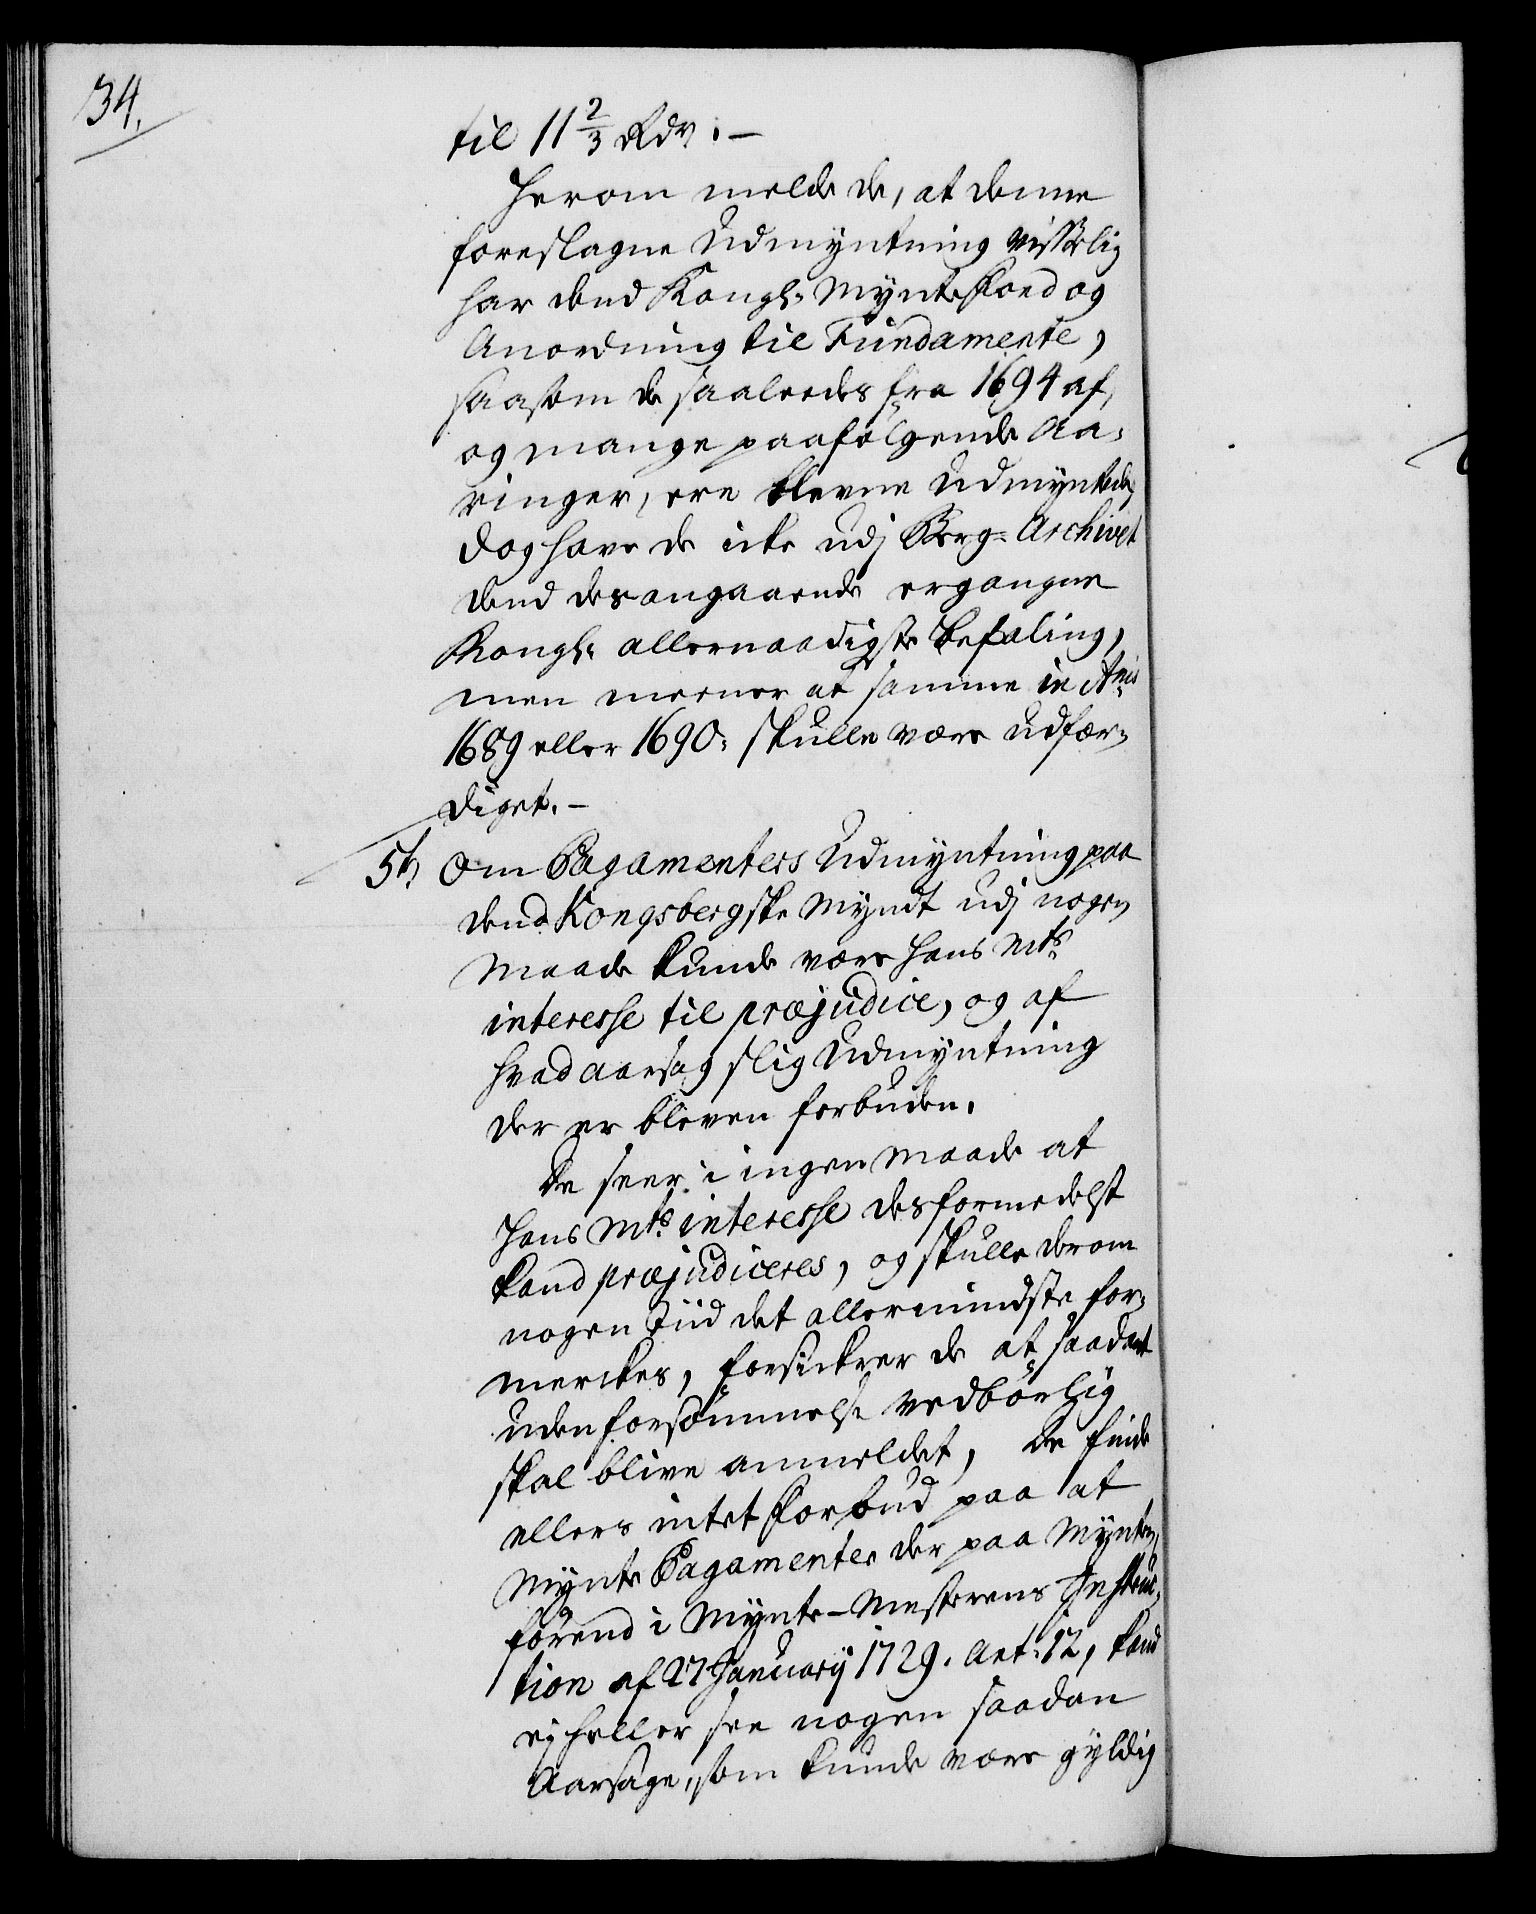 34.
til 11 2/3 Rdr. –
Herom melde de, at denne
foreslagne Udmyntning visselig
har dend Kongl: Mynte Foed og
Anordning til Fundamente,
saasom de saaleedes fra 1694 af,
og mange paafølgende Aa-
ringer, ere blevne Udmyntede,
dog have de icke udj Berg-Archivet
dend des angaaende ergangne
Kongl: allernaadigste Befaling,
men meener at samme in Anis
1689 eller 1690: skulle være udfær-
diget. –
5t, Om Pagamenters Udmyntning paa
dend Kongsbergske Myndt udj nogen
Maade kunde være Hans Mts
interesse til præjudice, og af
hvad aarsag slig Udmyntning
der er bleven forbuden.
De seer i ingen Maade at
Hans Mts interesse desformedelst
kand præjudiceres, og skulle derom
nogen Tiid det allermindste for-
merckes, forsickrer de at saadant
uden forsømmelse vedbørlig
skal blive anmeldet, De finde
ellers intet Forbud paa at
Mynte Pagamenter der paa Mynten,
førend i Mynte-Mesterens Instruc-
tion af 27 January 1729. Art: 12, kand
ej heller see nogen saadan
Aarsage, som kunde være gyldig